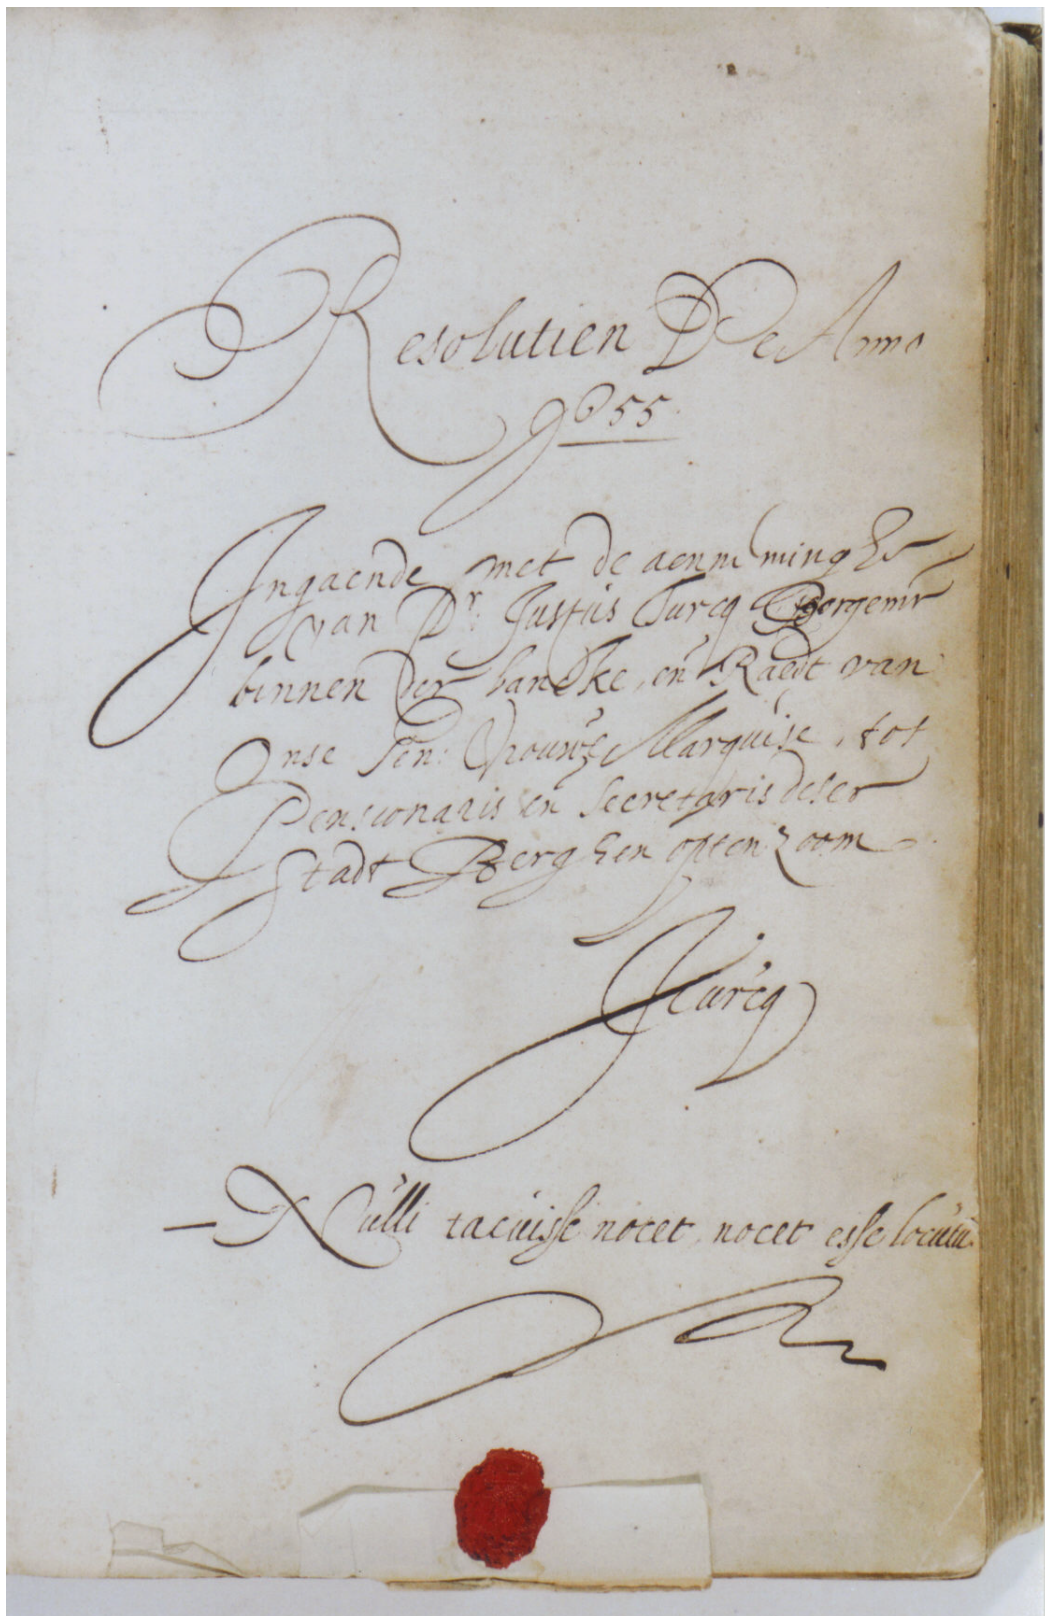 Resolutien De Anno
1655
Ingaende met de aenneminghe
van Dr. Justus Turcq Borgemr
binnen der bancke, en Raedt van
Onse Gen: Vrouwe Marquise, tot
Pensionaris en Secretaris deser
Stadt Berghen opten zoom
JTurcq
Nulli tacuisse nocet, nocet esse locutu.